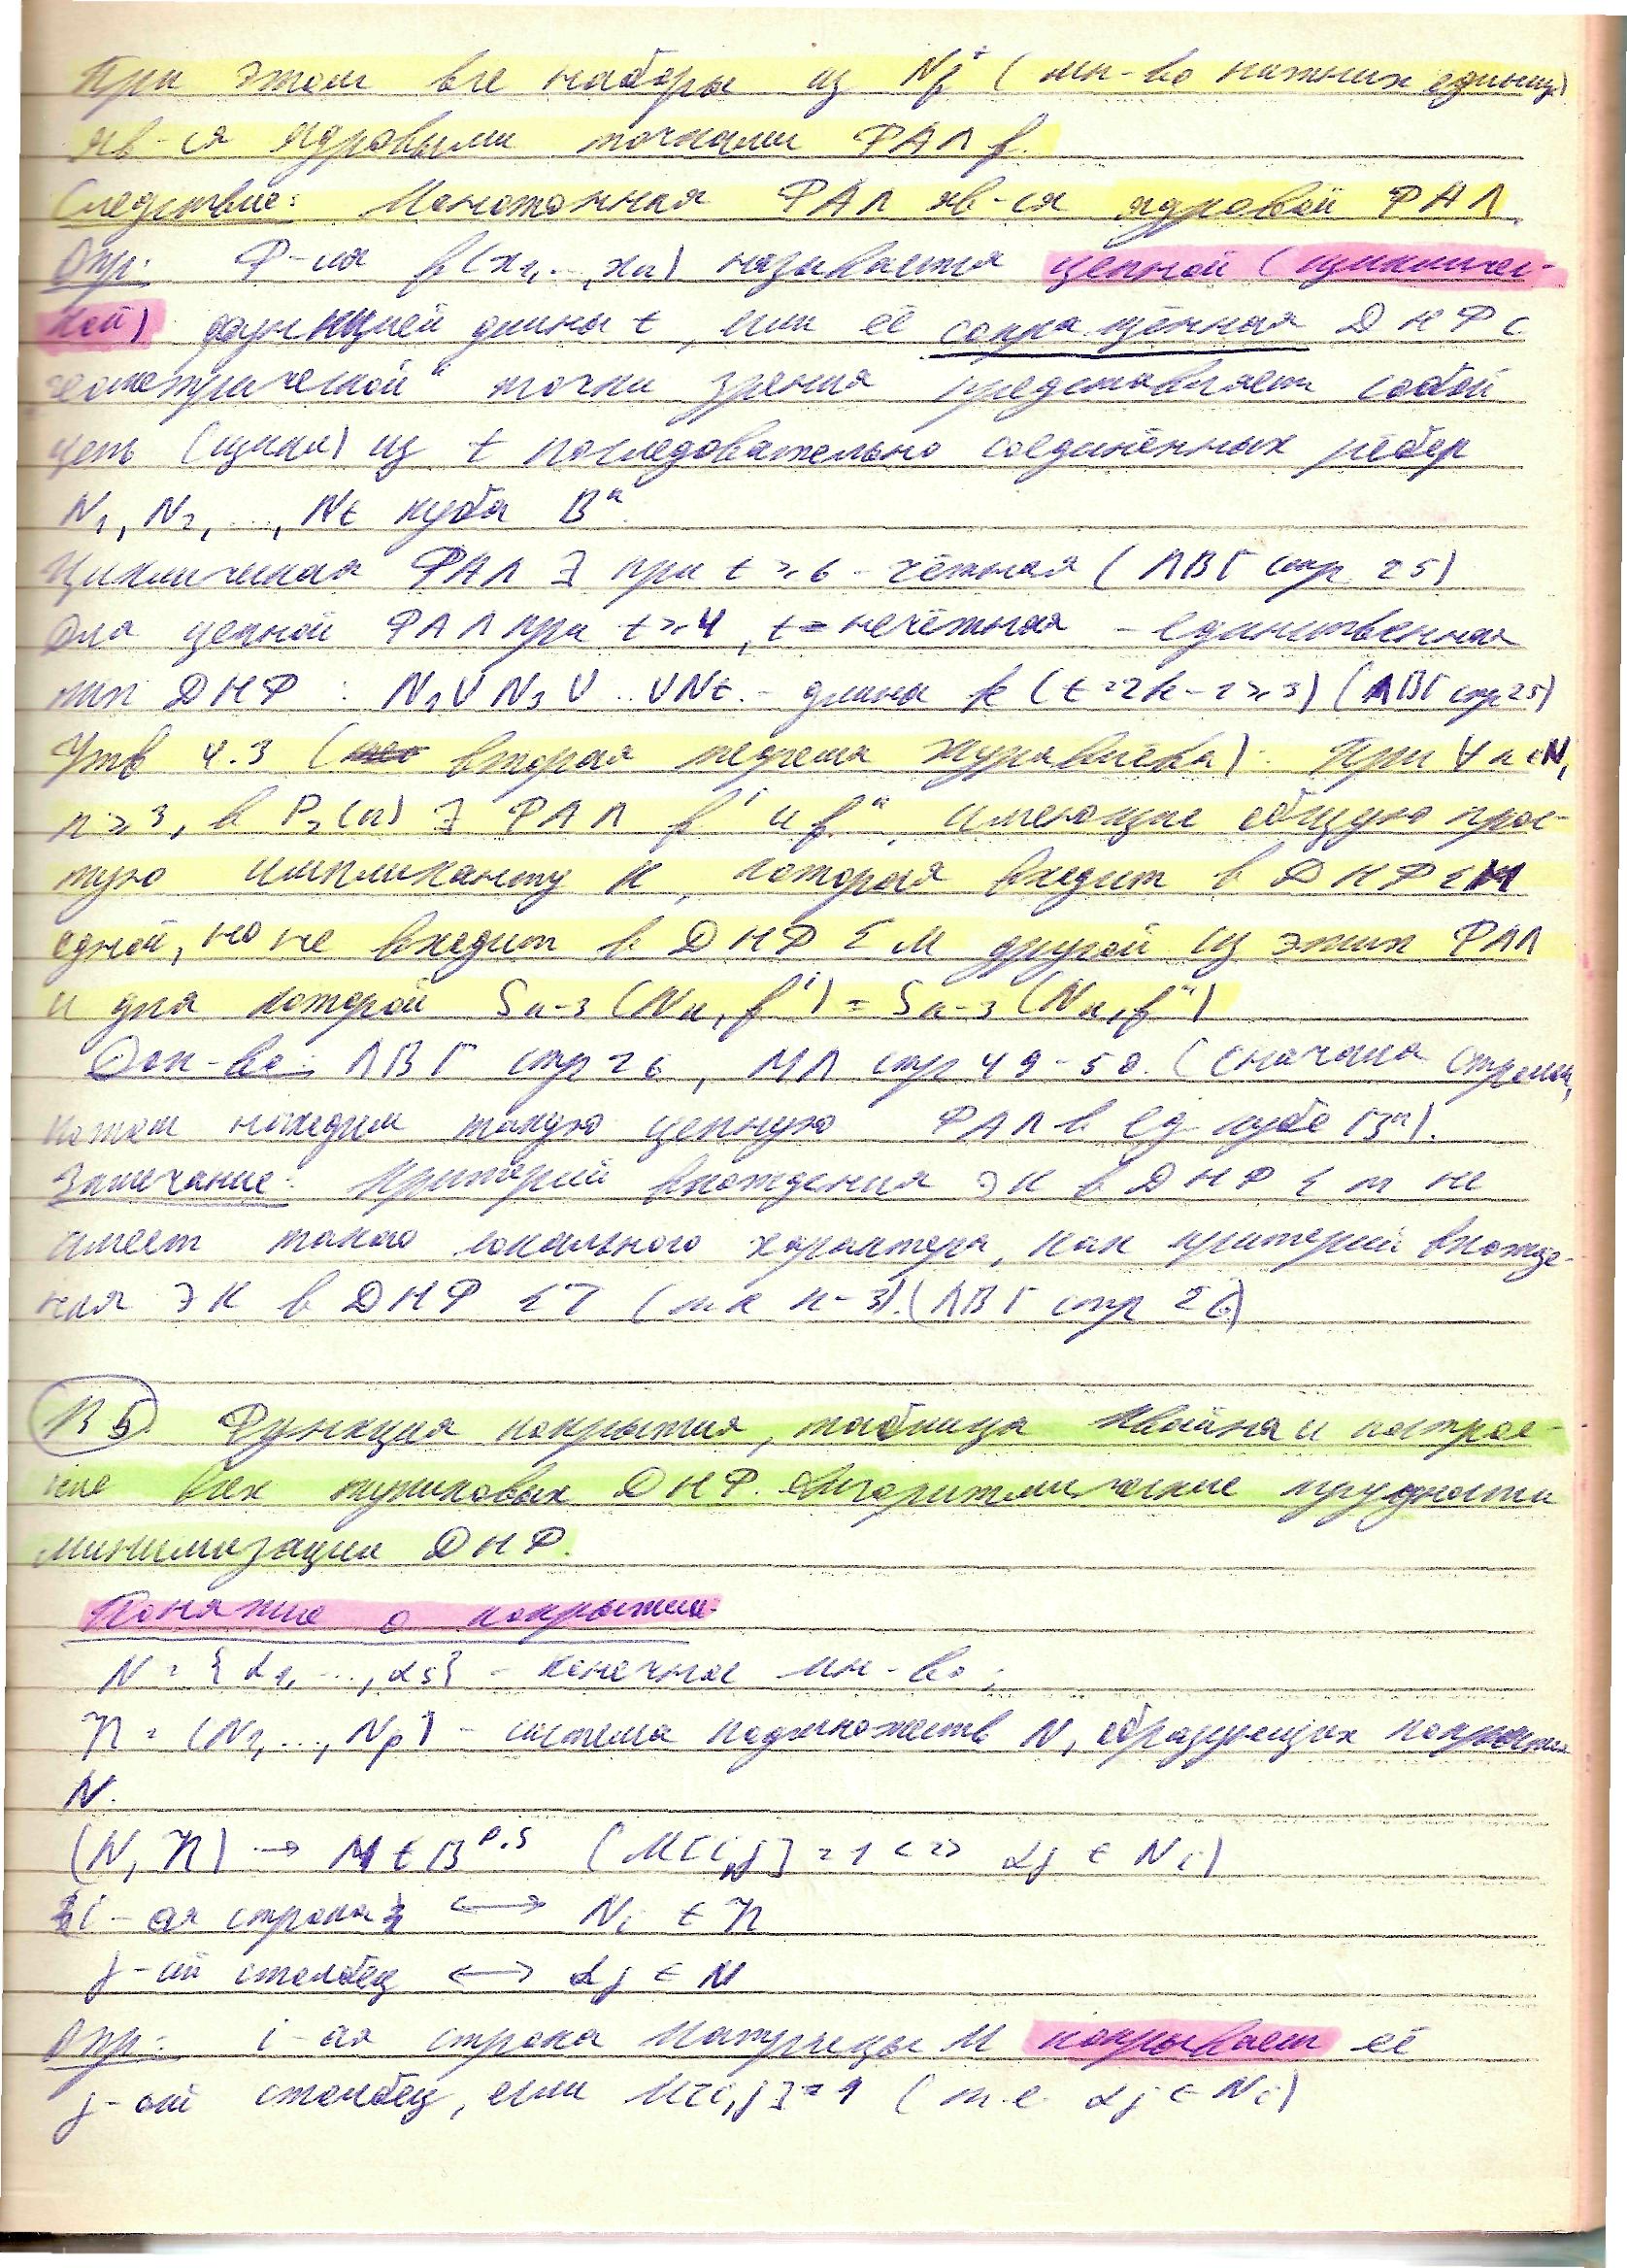 При этом все наборы из N_f^+ (мн-во нижних единиц)
яв-ся ядровыми точками ФАЛ f.
Следствие: Монотонная ФАЛ яв-ся ядровой ФАЛ.
Опр: Ф-ия f(x₁,...,xₙ) называется цепной (цикличес-
кой) функцией длины t, если её сокращённая ДНФ с
"геометрической" точки зрения представляет собой
цепь (цикл) из t последовательно соединённых рёбер
N₁, N₂, ..., Nt куба Bⁿ.
Циклическая ФАЛ ∃ при t ⩾ 6 - чётная (ЛВГ стр 25)
Для цепной ФАЛ при t ⩾ 4, t = нечётная - единственная
мин ДНФ : N₁ ∨ N₃ ∨ .. ∨ Nt. - длины k (t = 2k-1 ⩾ 3) (ЛВГ стр 25)
Утв 4.3 (вторая теорема Журавлёва): При ∀ n ∈ N,
n ⩾ 3, в P₂(n) ∃ ФАЛ f' и f'', имеющие общую прос-
тую импликанту K, которая входит в ДНФ ΣM
одной, но не входит в ДНФ ΣM другой из этих ФАЛ
и для которой Sₙ₋₃(Nк, f') = Sₙ₋₃(Nк, f'')
Док-во: ЛВГ стр 26, МЛ стр 49-50. (сначала строим,
потом находим такую цепную ФАЛ в ед. кубе Bⁿ).
Замечание: Критерий вхождения ЭК в ДНФ Σm не
имеет такого локального характера, как критерий вхожде-
ния ЭК в ДНФ ΣT (т.к n-3). (ЛВГ стр 26)
В5. Функция покрытия, таблица Квайна и построе-
ние всех тупиковых ДНФ. Алгоритмические трудности
минимизации ДНФ.
Понятие о покрытии.
N = {α₁, ..., αs} - конечное мн-во;
𝔑 = (N₁, ..., Np) - система подмножеств N, образующих покрытие
N.
(N, 𝔑) → M ∈ B^{p,s} (M[i,j] = 1 <=> αj ∈ Ni)
i-ая строка ⟷ Ni ∈ 𝔑
j-ый столбец ⟷ αj ∈ N
Опр: i-ая строка матрицы M покрывает её
j-ый столбец, если M[i,j] = 1 (т.е. αj ∈ Ni)